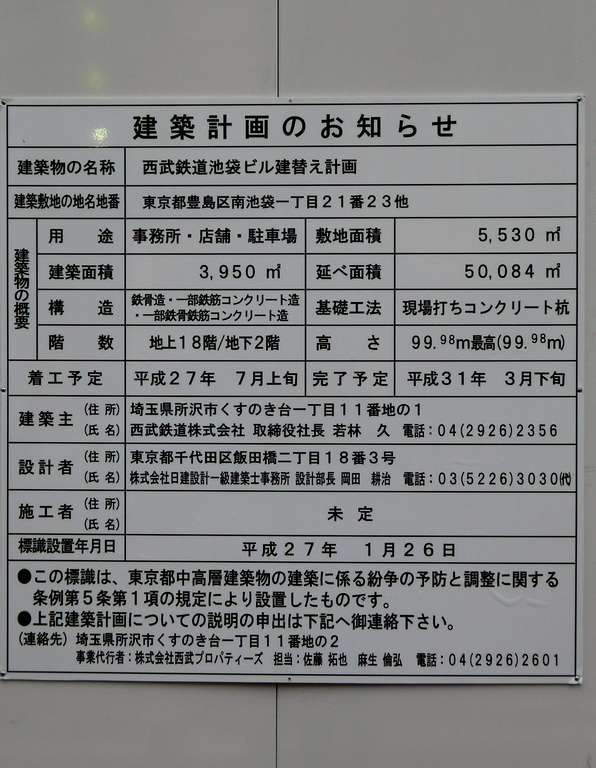 建築計画のお知らせ
建築物の名称 西武鉄道池袋ビル建替え計画
建築敷地の地名地番 東京都豊島区南池袋一丁目21番23他
建築物の概要
用途 事務所・店舗・駐車場 敷地面積 5,530㎡
建築面積 3,950㎡ 延べ面積 50,084㎡
構造 鉄骨造・一部鉄筋コンクリート造 基礎工法 現場打ちコンクリート杭
・一部鉄骨鉄筋コンクリート造
階数 地上18階/地下2階 高さ 99.98m最高(99.98m)
着工予定 平成27年 7月上旬 完了予定 平成31年 3月下旬
建築主 (住所) 埼玉県所沢市くすのき台一丁目11番地の1
(氏名) 西武鉄道株式会社 取締役社長 若林 久 電話:04(2926)2356
設計者 (住所) 東京都千代田区飯田橋二丁目18番3号
(氏名) 株式会社日建設計一級建築士事務所 設計部長 岡田 耕治 電話:03(5226)3030㈹
施工者 (住所) 未定
(氏名)
標識設置年月日 平成27年 1月26日
●この標識は、東京都中高層建築物の建築に係る紛争の予防と調整に関する
条例第5条第1項の規定により設置したものです。
●上記建築計画についての説明の申出は下記へ御連絡下さい。
(連絡先) 埼玉県所沢市くすのき台一丁目11番地の2
事業代行者:株式会社西武プロパティーズ 担当:佐藤 拓也 麻生 倫弘 電話:04(2926)2601